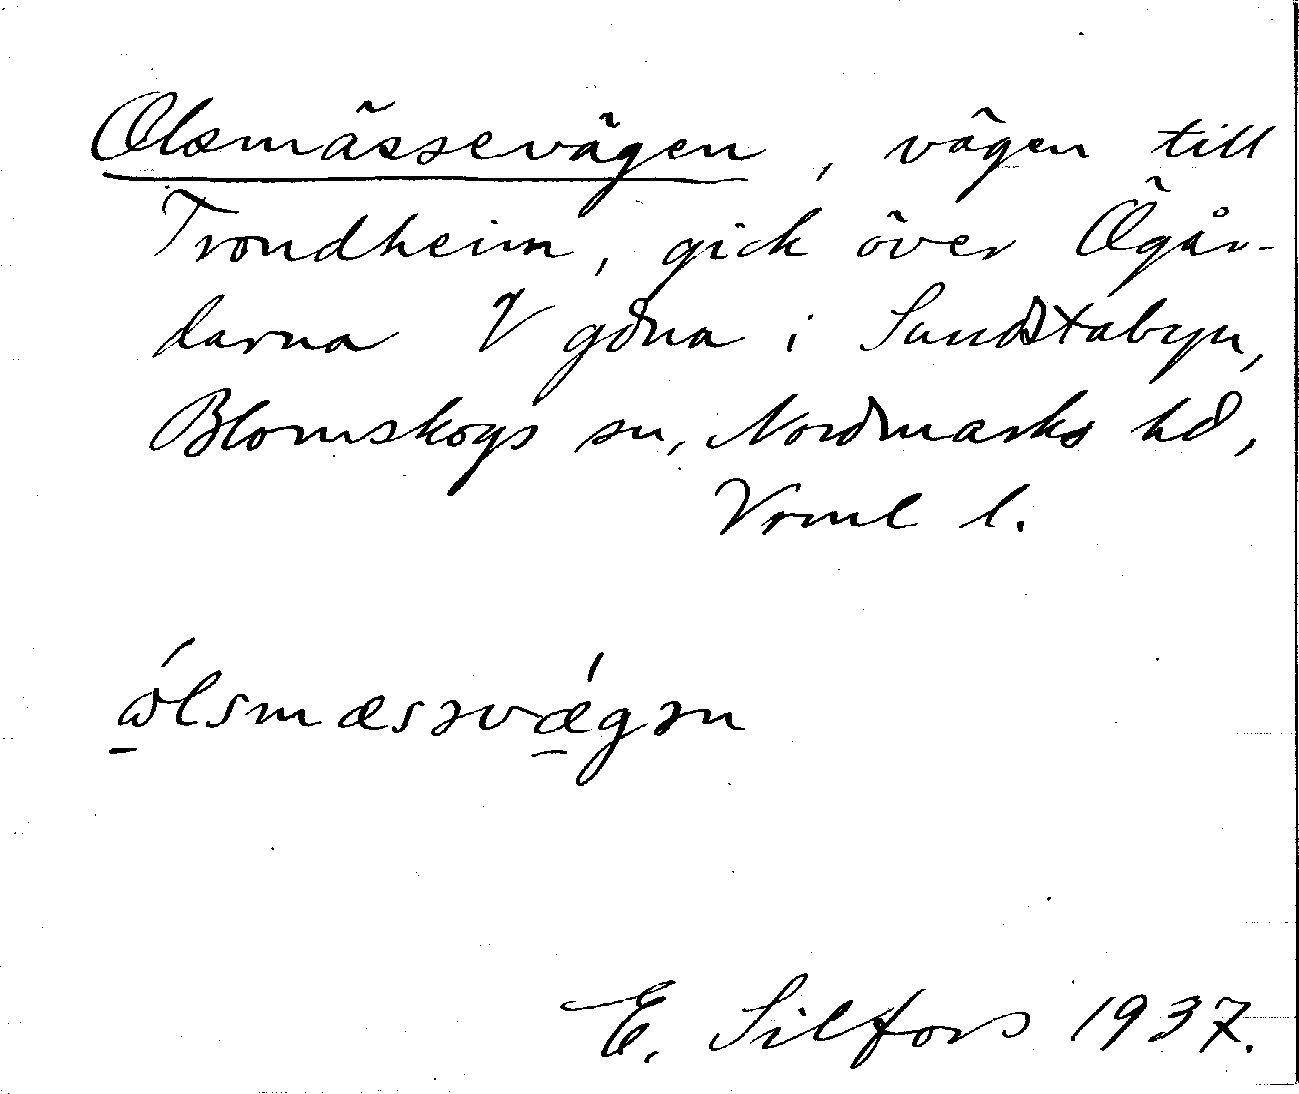 Olsmässevägen, vägen till
Trondheim, gick över Ögår-
darna V gdna i Sundstabyn,
Blomskogs sn, Nordmarks hd,
Vrml l.
ώlsmæsəvǽgən
E. Silfors 1937.